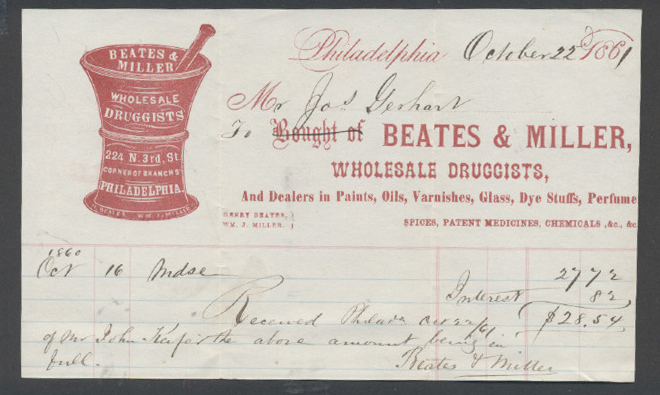 BEATES & MILLER
WHOLESALE
DRUGGISTS
224 N. 3rd. St
CORNER OF BRANCH St
PHILADELPHIA.
H. BEATES WM. J. MILLER
Philadelphia October 22 1861
Mr Jos Gerhart
To Bought of BEATES & MILLER,
WHOLESALE DRUGGISTS,
And Dealers in Paints, Oils, Varnishes, Glass, Dye Stuffs, Perfume
HENRY BEATES,
WM. J. MILLER.
SPICES, PATENT MEDICINES, CHEMICALS, &c., &c
1860
Oct 16 Mdse 27 72
Interest 82
$28.54
Received Philada Oct 22/61
of Mr John the above amount being in
full. Beates & Miller